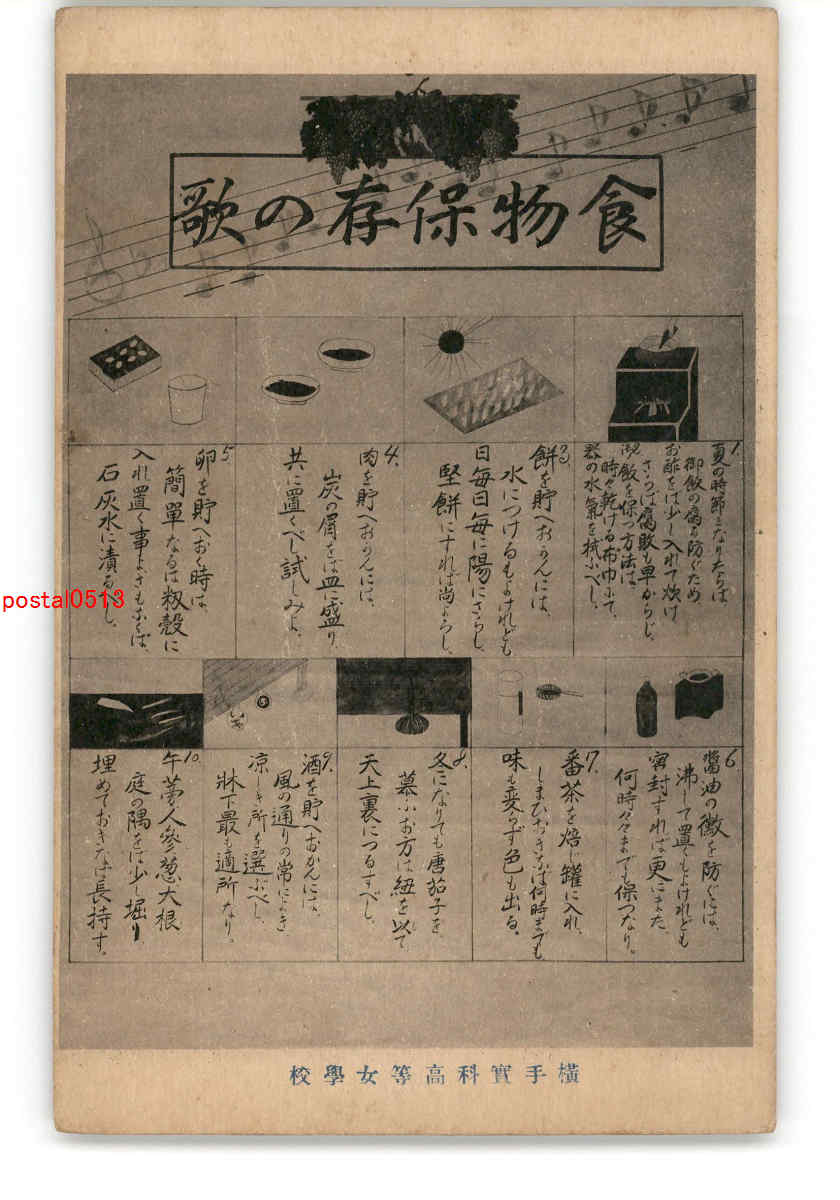 食物保存の歌
1.
夏の時節となりたらば
御飯の腐る防ぐため
お酢をば少し入れて炊け
さらば腐敗も早からじ
飯を保つ方法は
時々乾ける布巾にて、
器の水氣を拭ふべし、
3
餅を貯へおかんには、
水につけるもよけれども
日毎日毎に陽にさらし、
堅餅にすれば尚よろし、
4.
肉を貯へおかんには、
炭の屑をば皿に盛り
共に置くべし試しみよ、
5.
卵を貯へおく時は、
簡單なるは籾殼に
入れ置く事よさもなくば、
石灰水に漬るべし、
6.
醬油の黴を防ぐには、
沸して置くもよけれども
密封すれば更にまた、
何時々々までも保つなり。
7.
番茶を焙じ罐に入れ、
しまひおきなば何時までも
味も変らず色も出る。
8.
冬になりても唐茄子を、
慕ふお方は紐を以て
天上裏につるすべし、
9.
酒を貯へおかんには、
風の通りの常によき
凉しき所を選ぶべし、
牀下最も適所なり。
10.
午蒡人參葱大根
庭の隅をば少し堀り
埋めておきなば長持す。
橫手實科高等女學校
postal0513